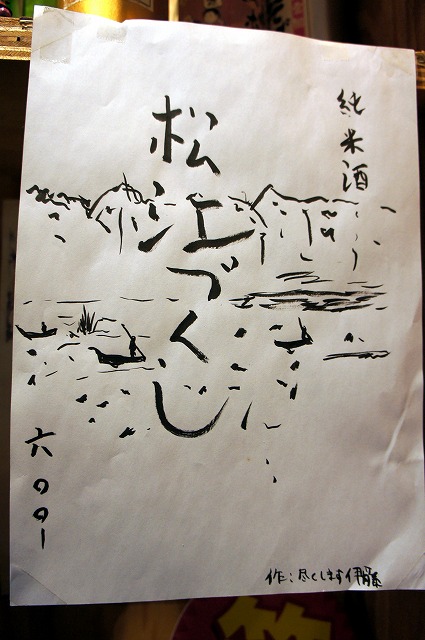 純米酒
松江づくし
六〇〇ー
作:尽くします伊藤